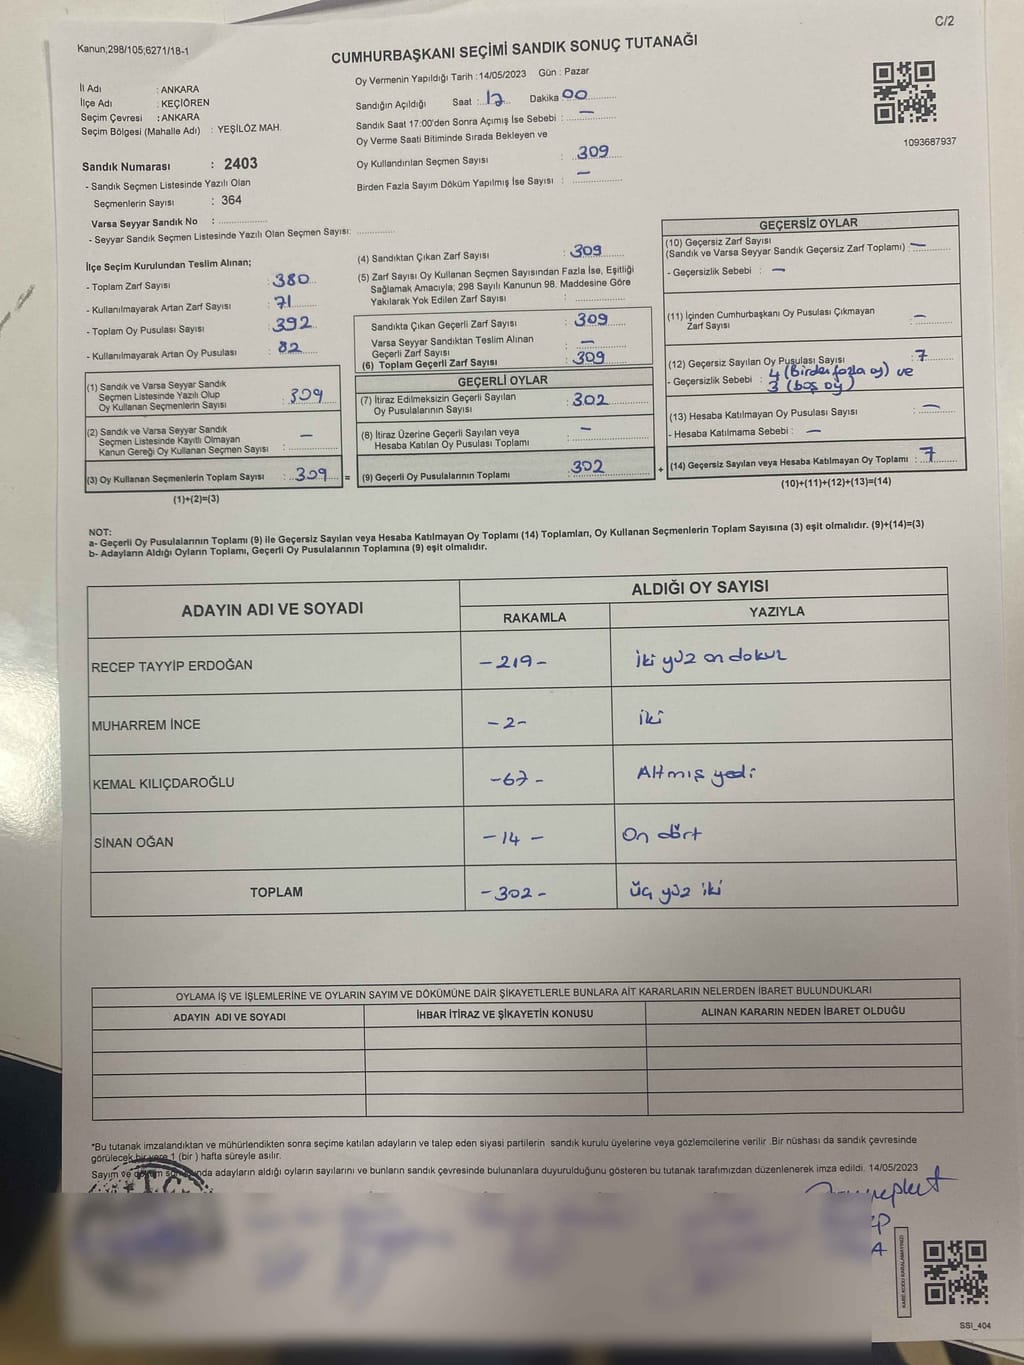 C/2
Kanun;298/105;6271/18-1
CUMHURBAŞKANI SEÇİMİ SANDIK SONUÇ TUTANAĞI
İl Adı : ANKARA
İlçe Adı : KEÇİÖREN
Seçim Çevresi : ANKARA
Seçim Bölgesi (Mahalle Adı) : YEŞİLÖZ MAH.
Sandık Numarası : 2403
- Sandık Seçmen Listesinde Yazılı Olan
Seçmenlerin Sayısı : 364
Varsa Seyyar Sandık No :
- Seyyar Sandık Seçmen Listesinde Yazılı Olan Seçmen Sayısı:
Oy Vermenin Yapıldığı Tarih : 14/05/2023 Gün : Pazar
Sandığın Açıldığı Saat : 17 Dakika 00
Sandık Saat 17:00'den Sonra Açımış İse Sebebi : —
Oy Verme Saati Bitiminde Sırada Bekleyen ve
Oy Kullandırılan Seçmen Sayısı : 309
Birden Fazla Sayım Döküm Yapılmış İse Sayısı : —
1093687937
İlçe Seçim Kurulundan Teslim Alınan;
- Toplam Zarf Sayısı : 380
- Kullanılmayarak Artan Zarf Sayısı : 71
- Toplam Oy Pusulası Sayısı : 392
- Kullanılmayarak Artan Oy Pusulası : 82
(1) Sandık ve Varsa Seyyar Sandık
Seçmen Listesinde Yazılı Olup
Oy Kullanan Seçmenlerin Sayısı : 309
(2) Sandık ve Varsa Seyyar Sandık
Seçmen Listesinde Kayıtlı Olmayan
Kanun Gereği Oy Kullanan Seçmen Sayısı : —
(3) Oy Kullanan Seçmenlerin Toplam Sayısı : 309 =
(1)+(2)=(3)
(4) Sandıktan Çıkan Zarf Sayısı : 309
(5) Zarf Sayısı Oy Kullanan Seçmen Sayısından Fazla İse, Eşitliği
Sağlamak Amacıyla; 298 Sayılı Kanunun 98. Maddesine Göre
Yakılarak Yok Edilen Zarf Sayısı :
Sandıkta Çıkan Geçerli Zarf Sayısı : 309
Varsa Seyyar Sandıktan Teslim Alınan
Geçerli Zarf Sayısı : —
(6) Toplam Geçerli Zarf Sayısı : 309
GEÇERLİ OYLAR
(7) İtiraz Edilmeksizin Geçerli Sayılan
Oy Pusulalarının Sayısı : 302
(8) İtiraz Üzerine Geçerli Sayılan veya
Hesaba Katılan Oy Pusulası Toplamı : —
(9) Geçerli Oy Pusulalarının Toplamı : 302 +
GEÇERSİZ OYLAR
(10) Geçersiz Zarf Sayısı
(Sandık ve Varsa Seyyar Sandık Geçersiz Zarf Toplamı) : —
- Geçersizlik Sebebi : —
(11) İçinden Cumhurbaşkanı Oy Pusulası Çıkmayan
Zarf Sayısı : —
(12) Geçersiz Sayılan Oy Pusulası Sayısı : 7
- Geçersizlik Sebebi : 4 (Birden fazla oy) ve
3 (boş oy)
(13) Hesaba Katılmayan Oy Pusulası Sayısı : —
- Hesaba Katılmama Sebebi : —
(14) Geçersiz Sayılan veya Hesaba Katılmayan Oy Toplamı : 7
(10)+(11)+(12)+(13)=(14)
NOT:
a- Geçerli Oy Pusulalarının Toplamı (9) ile Geçersiz Sayılan veya Hesaba Katılmayan Oy Toplamı (14) Toplamları, Oy Kullanan Seçmenlerin Toplam Sayısına (3) eşit olmalıdır. (9)+(14)=(3)
b- Adayların Aldığı Oyların Toplamı, Geçerli Oy Pusulalarının Toplamına (9) eşit olmalıdır.
ADAYIN ADI VE SOYADI ALDIĞI OY SAYISI
RAKAMLA YAZIYLA
RECEP TAYYİP ERDOĞAN -219- iki yüz on dokuz
MUHARREM İNCE -2- iki
KEMAL KILIÇDAROĞLU -67- Altmış yedi
SİNAN OĞAN -14- On dört
TOPLAM -302- üç yüz iki
OYLAMA İŞ VE İŞLEMLERİNE VE OYLARIN SAYIM VE DÖKÜMÜNE DAİR ŞİKAYETLERLE BUNLARA AİT KARARLARIN NELERDEN İBARET BULUNDUKLARI
ADAYIN ADI VE SOYADI İHBAR İTİRAZ VE ŞİKAYETİN KONUSU ALINAN KARARIN NEDEN İBARET OLDUĞU
*Bu tutanak imzalandıktan ve mühürlendikten sonra seçime katılan adayların ve talep eden siyasi partilerin sandık kurulu üyelerine veya gözlemcilerine verilir .Bir nüshası da sandık çevresinde
görülecek bir yere 1 (bir ) hafta süreyle asılır.
Sayım ve döküm sonunda adayların aldığı oyların sayılarını ve bunların sandık çevresinde bulunanlara duyurulduğunu gösteren bu tutanak tarafımızdan düzenlenerek imza edildi. 14/05/2023
T.C.
KARE KODU KARALAMAYINIZ!
SSI_404